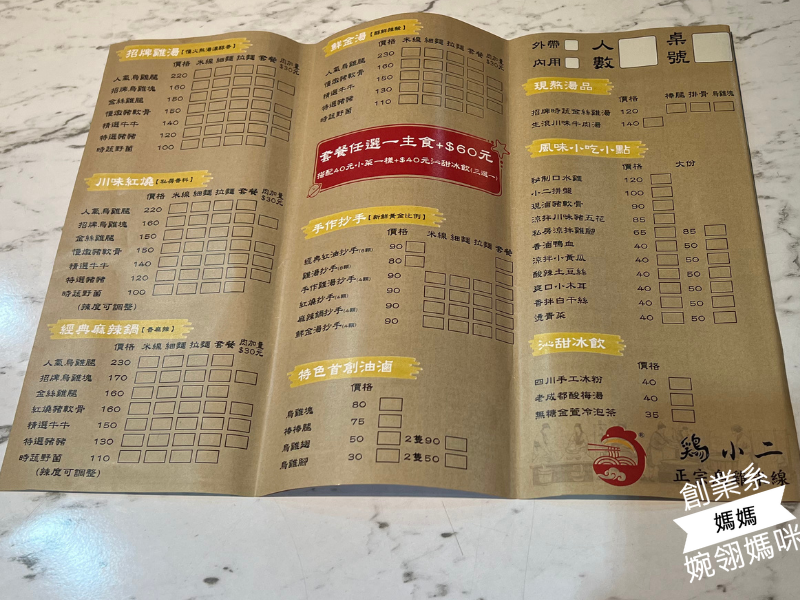 招牌雞湯【慢火熬湯濃醇香】
價格 米線 細麵 拉麵 套餐 肉加量$30元
人氣烏雞腿 220
招牌烏雞塊 160
金絲雞腿 150
慢燉豬軟骨 150
精選牛牛 140
特選豬豬 120
時蔬野菌 100
川味紅燒【私房醬料】
價格 米線 細麵 拉麵 套餐 肉加量$30元
人氣烏雞腿 220
招牌烏雞塊 160
金絲雞腿 150
慢燉豬軟骨 150
精選牛牛 140
特選豬豬 120
時蔬野菌 100
(辣度可調整)
經典麻辣鍋【香麻辣】
價格 米線 細麵 拉麵 套餐 肉加量$30元
人氣烏雞腿 230
招牌烏雞塊 170
金絲雞腿 160
紅燒豬軟骨 160
精選牛牛 150
特選豬豬 130
時蔬野菌 110
(辣度可調整)
鮮金湯
價格 米線 細麵 拉麵 套餐 肉加量$30元
人氣烏雞腿 230
慢燉豬軟骨 160
精選牛牛 150
特選豬豬
時蔬野菌
套餐任選一主食+$60元
搭配40元小菜一樣+$40元沁甜冰飲(三選一)
手作抄手【新鮮黃金比例】
價格 米線 細麵 拉麵 套餐
經典紅油抄手 90
雞湯抄手 80
手作雞湯抄手 90
紅燒抄手 90
麻辣鍋抄手 90
鮮金湯抄手 90
特色首創油滷
價格
烏雞塊 80
棒棒腿 75
烏雞翅 50 2隻90
烏雞腳 30 2隻50
外帶 人數 桌號
內用
現熬湯品
價格 棒腿 排骨 烏雞
招牌時蔬金絲雞湯 120
生滾川味牛肉湯 140
風味小吃小點
價格 大份
秘制口水雞 120
小二拼盤 100
現滷豬軟骨 90
涼拌川味豬五花 85
私房涼拌雞腳 65 85
香滷鴨血 40 50
涼拌小黃瓜 40 50
酸辣土豆絲 40 50
爽口小木耳 40 50
香拌白干絲 40 50
燙青菜 40 50
沁甜冰飲
價格
四川手工冰粉 40
老成都酸梅湯 40
無糖金萱冷泡茶 35
鷄小二
創業系
媽媽
婉翎媽咪